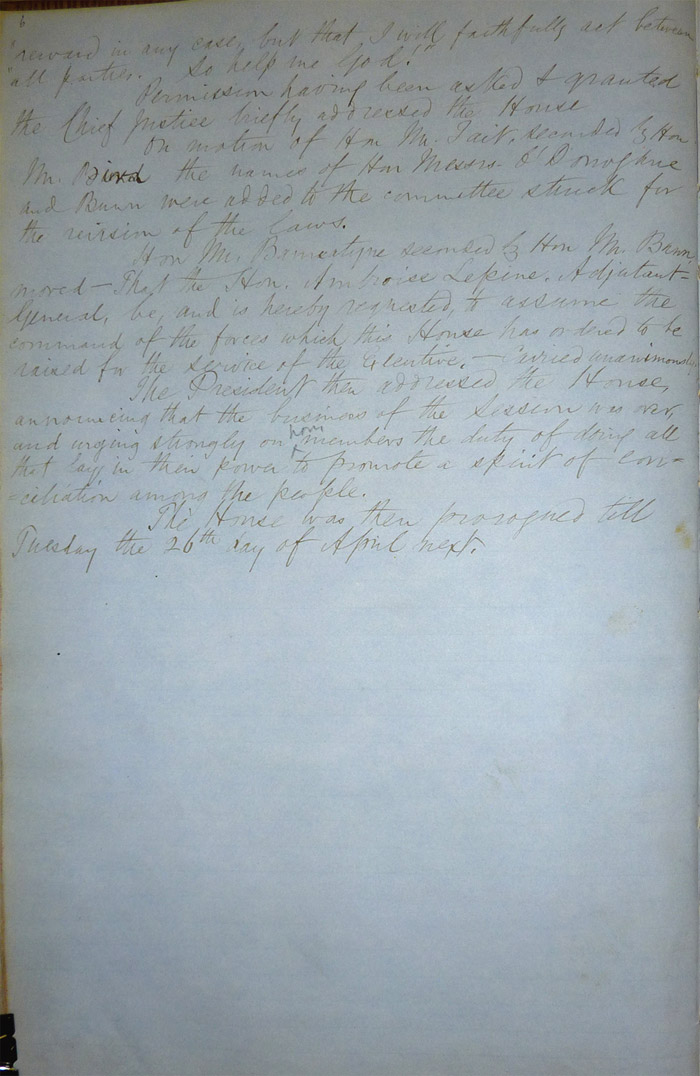 6
"reward in any case, but that I will faithfully act between
"all parties. So help me God!"
Permission having been asked & granted
the Chief Justice briefly addressed the House
On motion of Hon Mr. Tait, seconded by Hon
Mr. Bird the names of Hon Messrs O'Donoghue
and Bunn were added to the committee struck for
the revision of the laws.
Hon Mr. Bannatyne seconded by Hon Mr. Bunn
moved — That the Hon. Ambroise Lepine, Adjutant-
General, be, and is hereby requested, to assume the
command of the forces which this House has ordered to be
raised for the service of the Executive. — Carried unanimously.
The President then addressed the House,
announcing that the business of the Session was over,
and urging strongly on hon members the duty of doing all
that lay in their power to promote a spirit of con-
-ciliation among the people.
The House was then prorogued till
Tuesday the 26th day of April next.